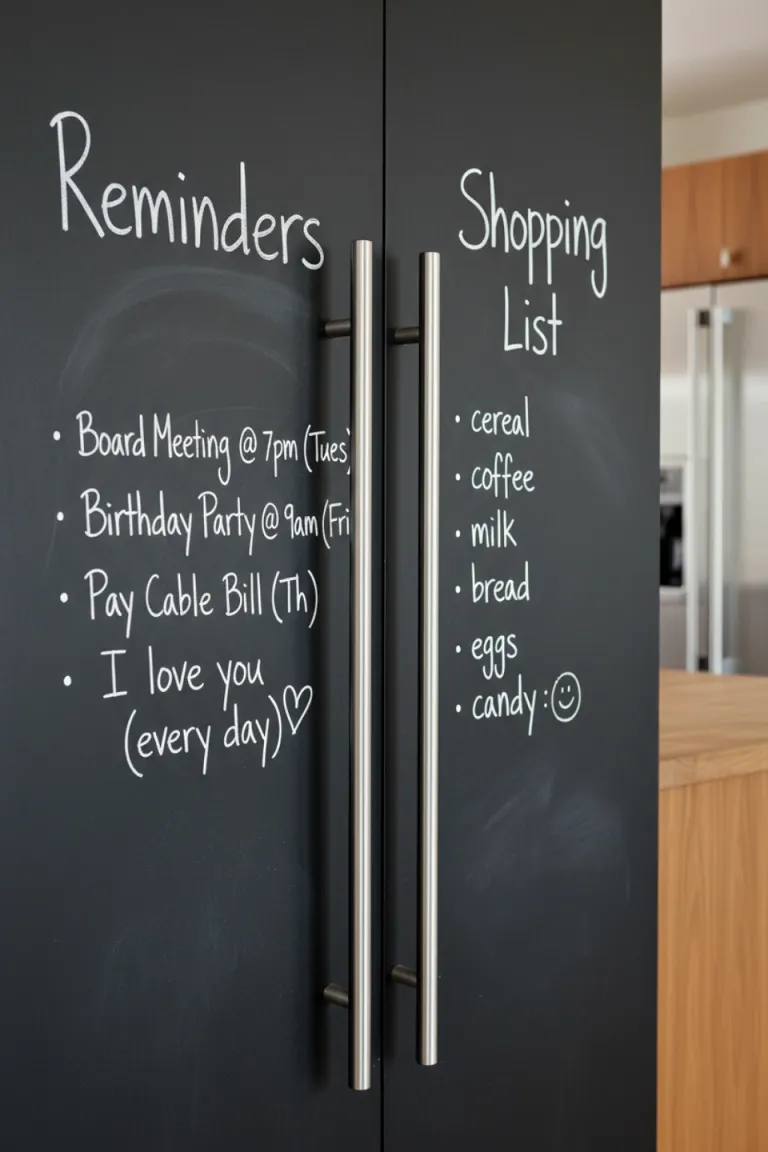 Reminders
• Board Meeting @ 7pm (Tues)
• Birthday Party @ 9am (Fri
• Pay Cable Bill (Th)
• I love you
(every day)♡
Shopping
List
• cereal
• coffee
• milk
• bread
• eggs
• candy :☺